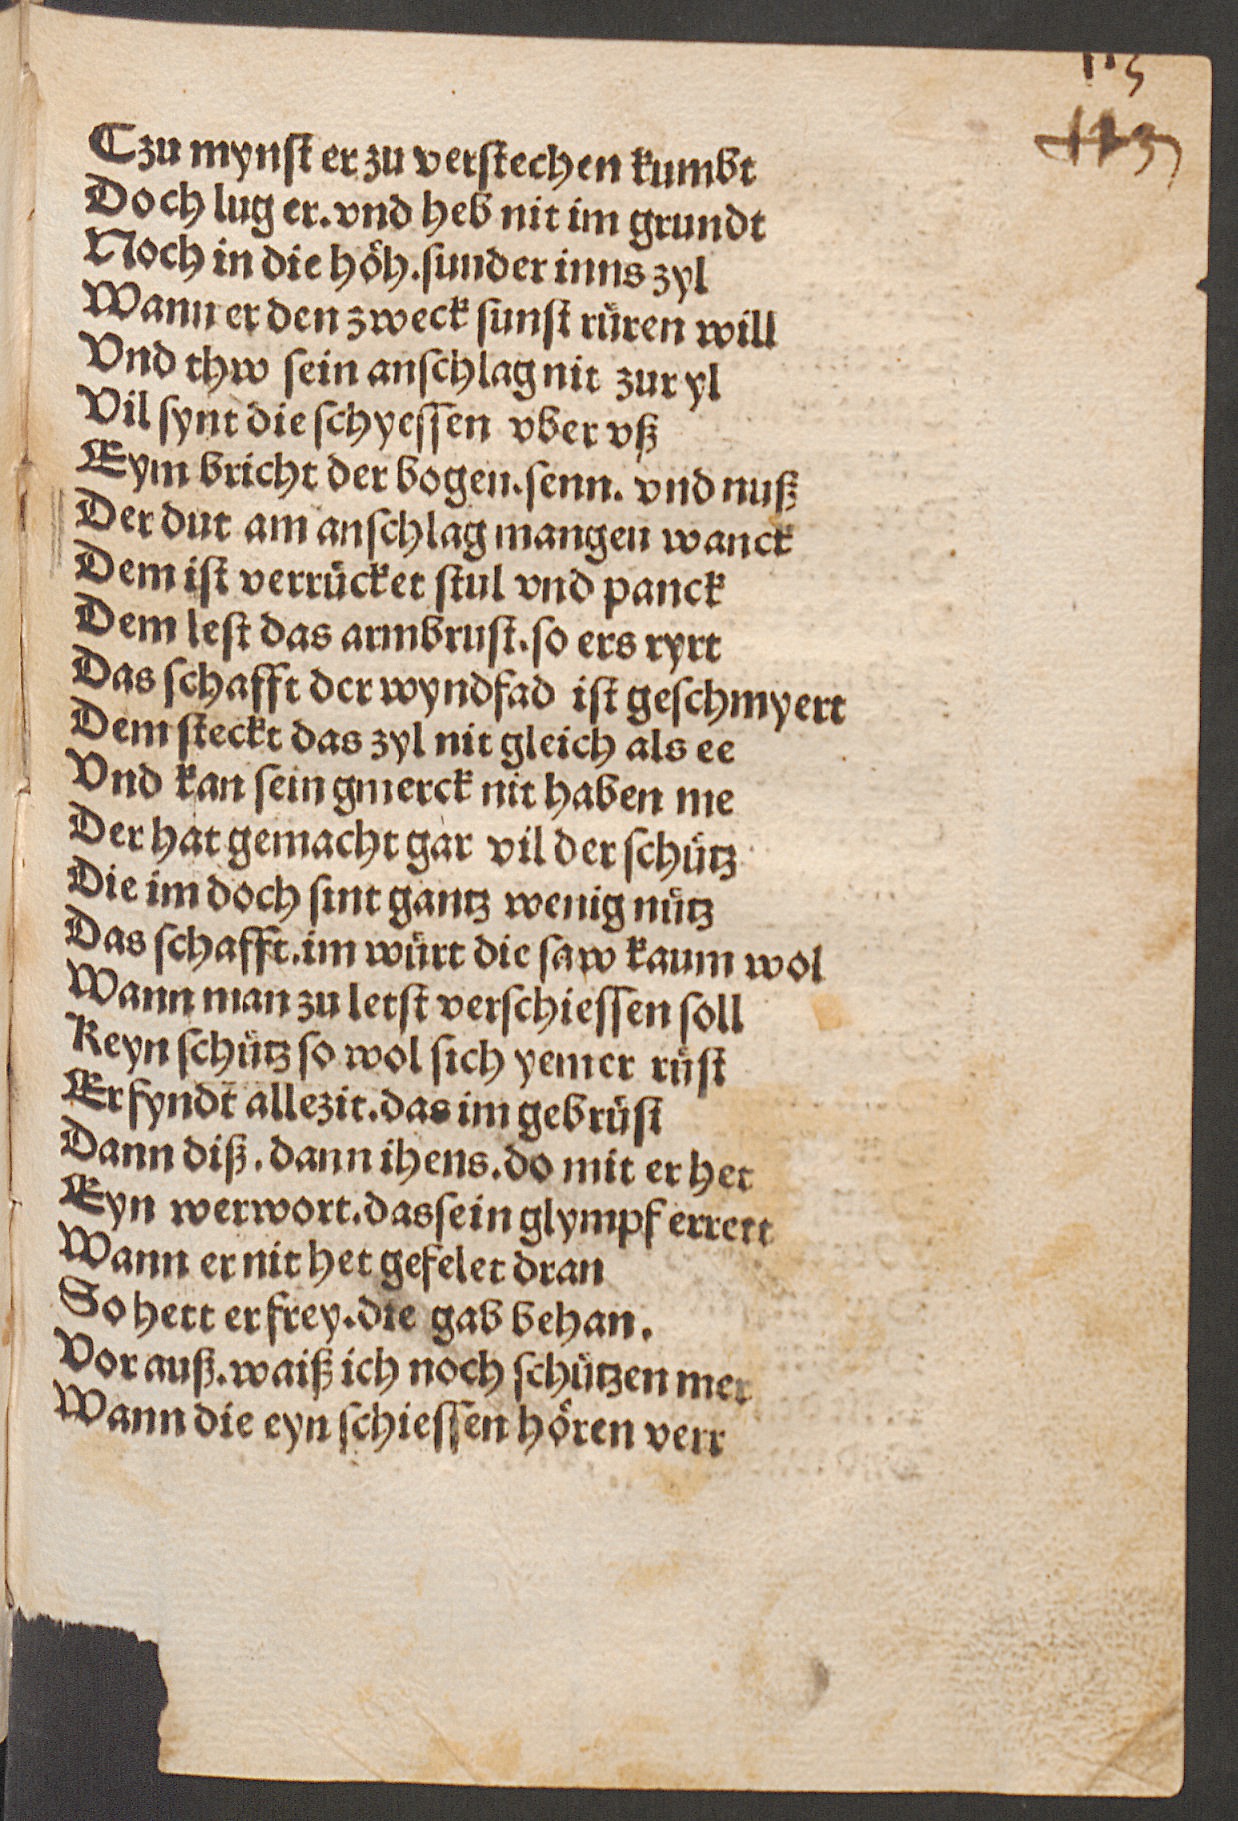 113
113
Czu mynſt er zu verſtechen kumbt
Doch lug er. vnd heb nit im grundt
Noch in die hoͤh. ſunder inns zyl
Wann er den zweck ſunſt ruͤren will
Vnd thw ſein anſchlag nit zur yl
Vil ſynt die ſchyeſſen vber vß
Eym bricht der bogen. ſenn. vnd nuß
Der dut am anſchlag mangen wanck
Dem iſt verruͤcket ſtul vnd panck
Dem leſt das armbruſt. ſo ers ryrt
Das ſchafft der wyndfad iſt geſchmyert
Dem ſteckt das zyl nit gleich als ee
Vnd kan ſein gmerck nit haben me
Der hat gemacht gar vil der ſchuͤtz
Die im doch ſint gantz wenig nuͤtz
Das ſchafft. im wuͤrt die ſaw kaum wol
Wann man zu letſt verſchieſſen ſoll
Keyn ſchuͤtz ſo wol ſich yemer ruͤſt
Er fyndt allezit. das im gebruͤſt
Dann diß. dann ihens. do mit er het
Eyn werwort. das ſein glympf errett
Wann er nit het gefelet dran
So hett er frey. die gab behan.
Vor auß. waiß ich noch ſchuͤtzen mer
Wann die eyn ſchieſſen hoͤren verr